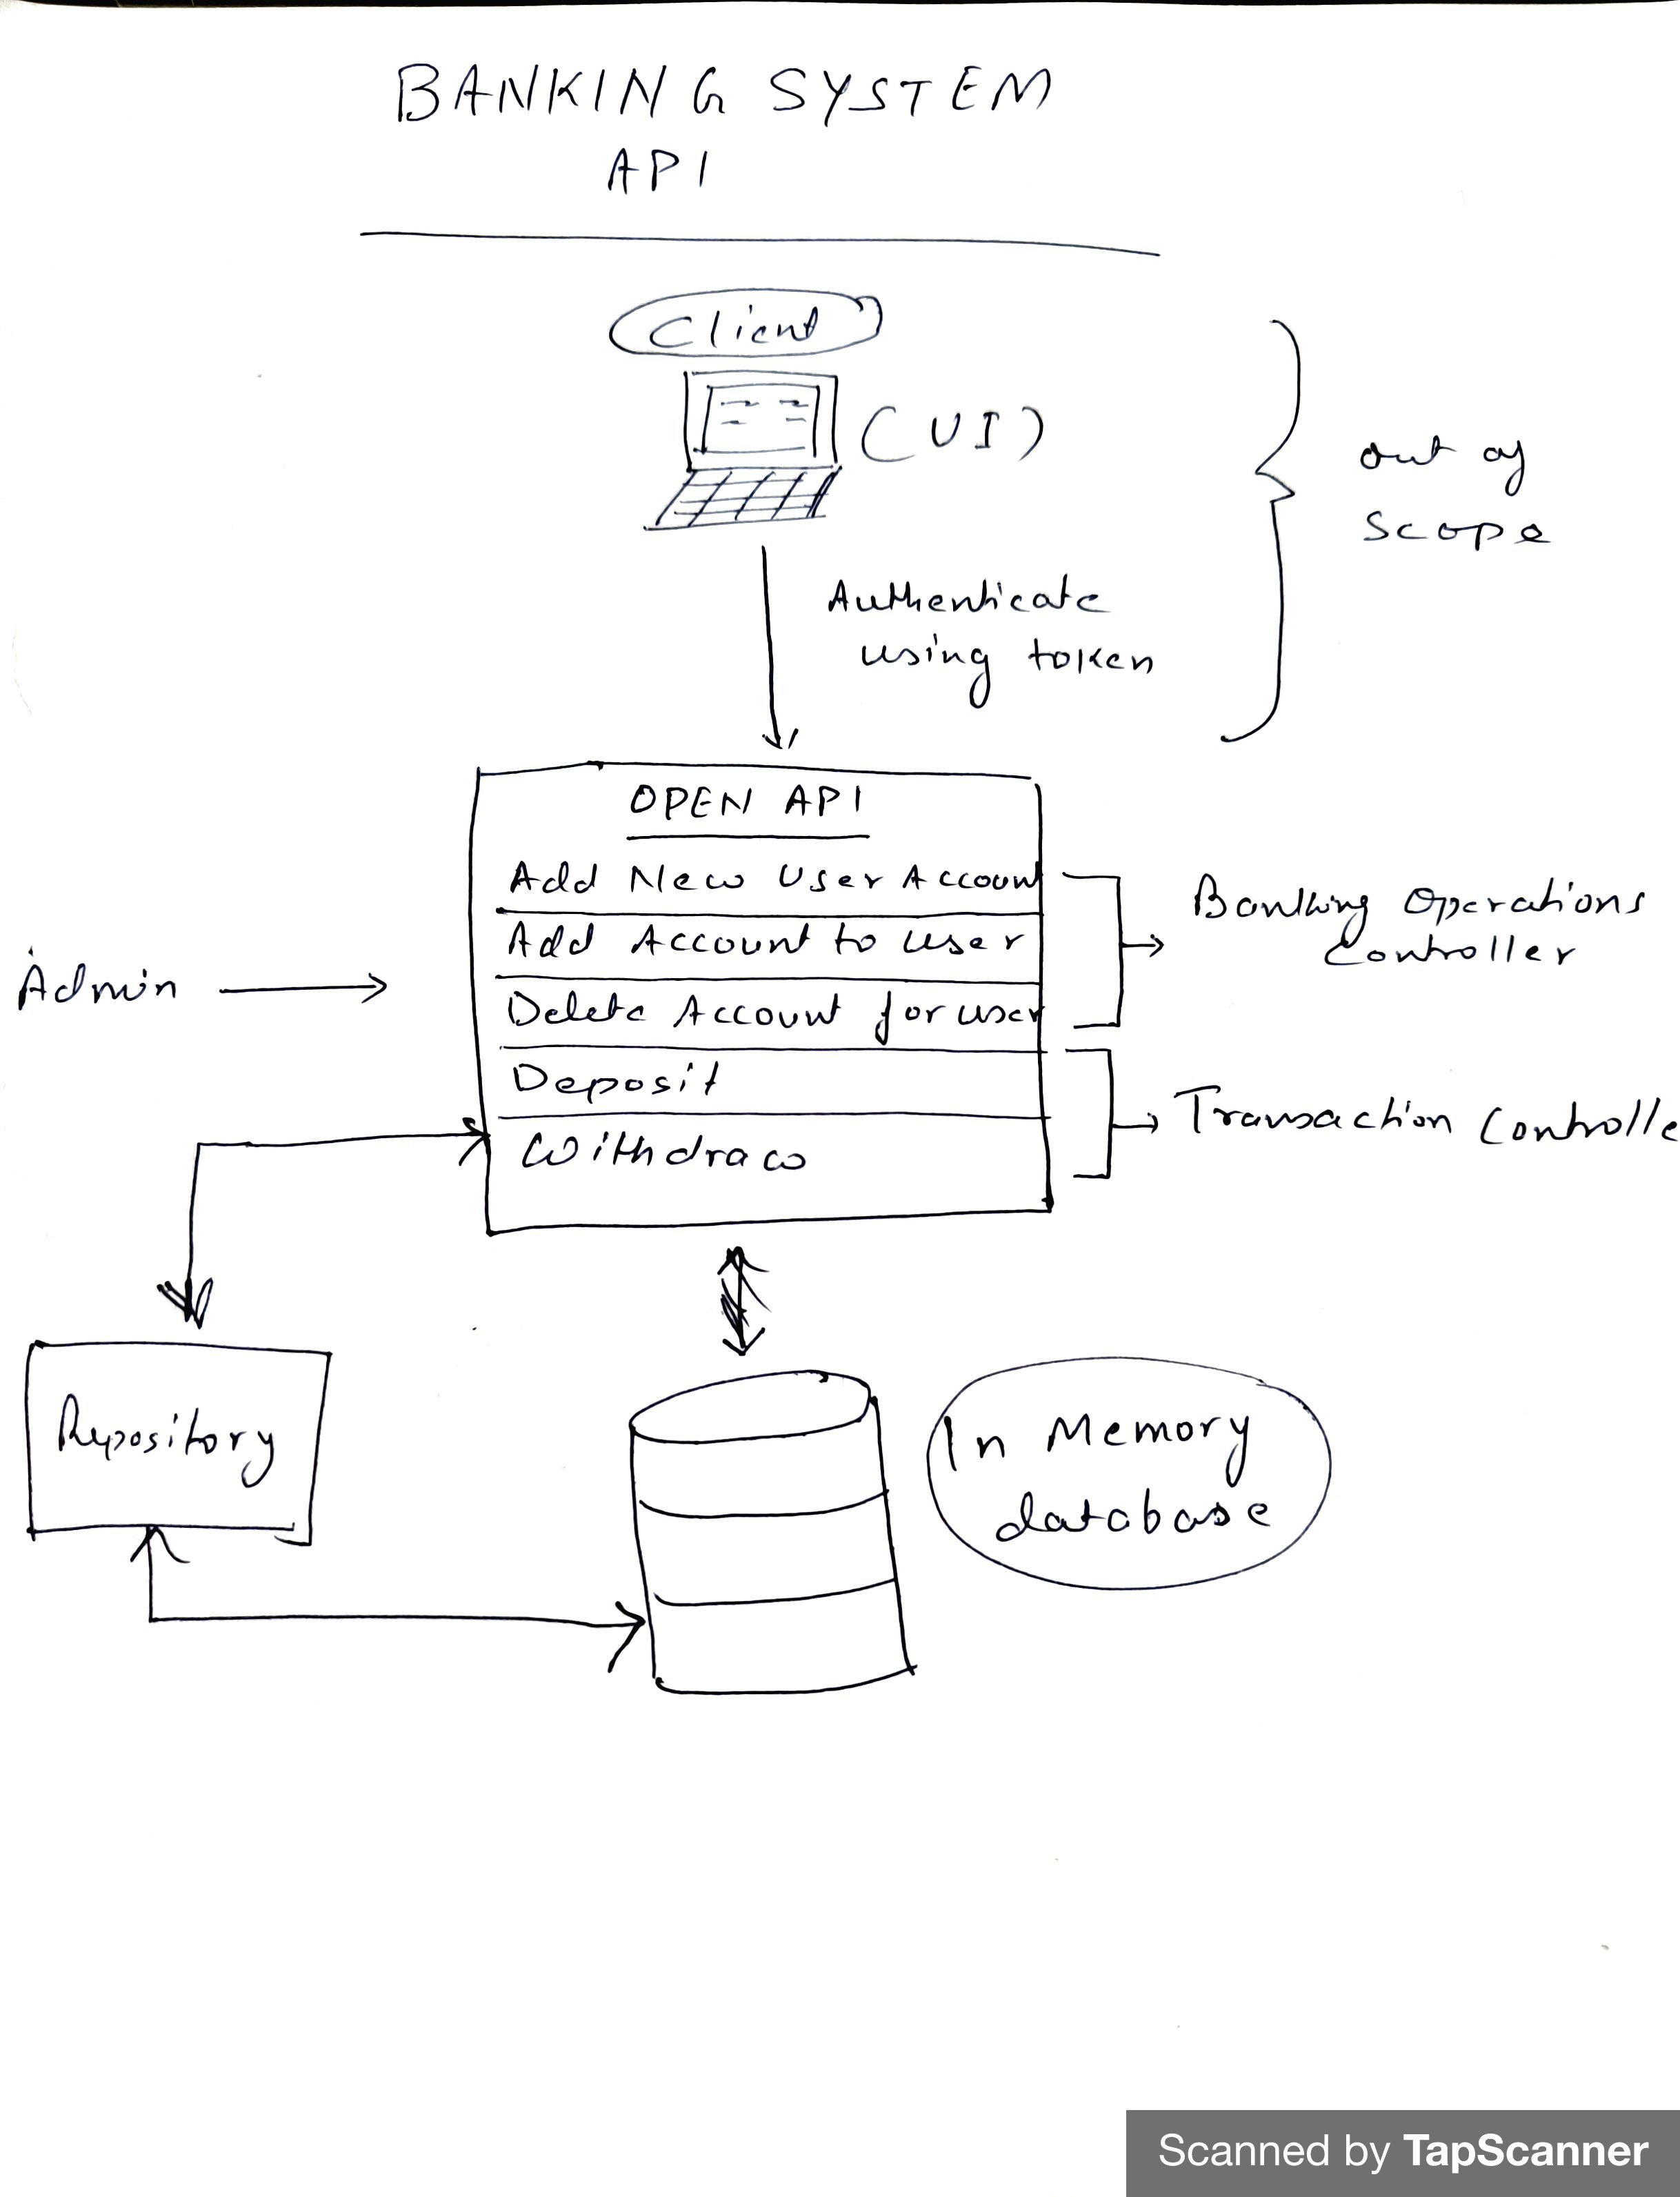 BANKING SYSTEM
API
Client
(UI)
out of
scope
Authenticate
using token
OPEN API
Add New User Account
Add Account to user
Delete Account for user
Deposit
Withdraw
Banking Operations
Controller
Admin
Transaction Controlle
Repository
In Memory
database
Scanned by TapScanner